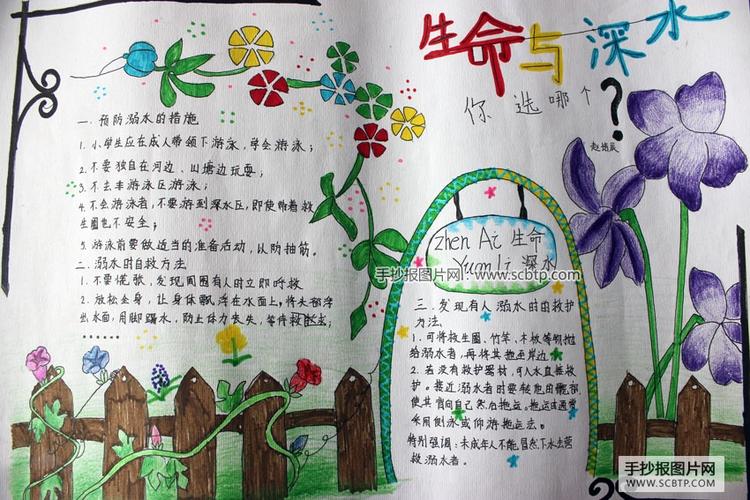 生命与深水
你选哪个?
赵培成
一、预防溺水的措施
1. 小学生应在成人带领下游泳，学会游泳；
2. 不要独自在河边、山塘边玩耍；
3. 不去非游泳区游泳；
4. 不会游泳者，不要游到深水区，即使带着救
生圈也不安全；
5. 游泳前要做适当的准备活动，以防抽筋。
二、溺水时自救方法
1. 不要慌张，发现周围有人时立即呼救
2. 放松全身，让身体飘浮在水面上，将头部浮
出水面，用脚踢水，防止体力丧失，等待救援；
……
zhen Ai 生命
Yuan Li 深水
手抄报图片网 · www.scbtp.com
三、发现有人溺水时的救护
方法
1. 可将救生圈、竹竿、木板等物抛
给溺水者，再将其拖至岸边；
2. 若没有救护器材，可入水直接救
护。接近溺水者时要转他的髋部，
使其背向自己然后拖运。拖运时通常
采用侧泳或仰游拖运法。
特别强调：未成年人不能冒然下水去营
救溺水者。
手抄报图片网
WWW.SCBTP.COM